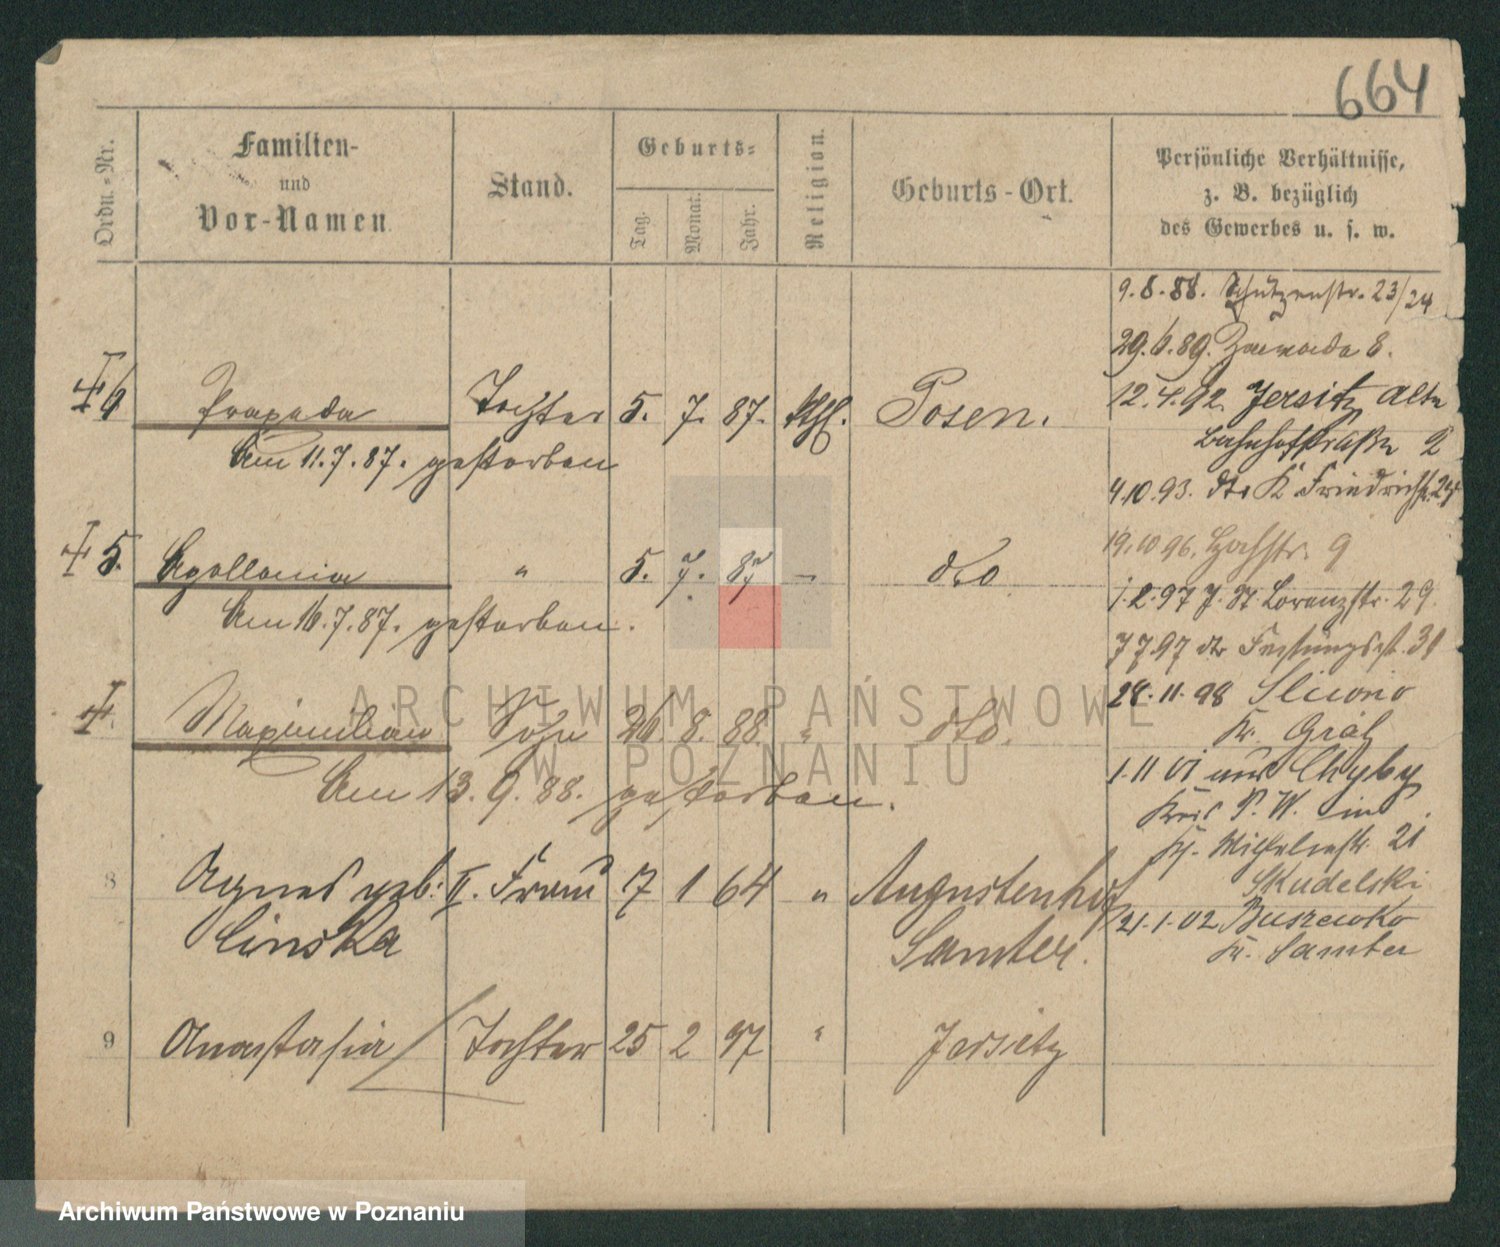 664
Ordn.-Nr.
Familien-
und
Vor-Namen.
Stand.
Geburts-
Tag.
Monat.
Jahr.
Religion.
Geburts-Ort.
Persönliche Verhältnisse,
z. B. bezüglich
des Gewerbes u. s. w.
9.8.88. Schützenstr. 23/24
29.6.89. Zawade 8.
12.4.92. Jersitz Alte
Bahnhofstraße 2
6 Praxeda Tochter 5. 7. 87. kth. Posen.
Am 11.7.87. gestorben
4.10.93. dto K Friedrichstr. 24
19.10 96. Hochstr. 9
5. Apollonia " 5. 7. 87 – dto
Am 16.7.87. gestorben.
1.2.97 J. St. Lorenzstr. 29.
7 7.97 dto Festungsst. 31
28.11.98 Sliwno
Kr. Grätz
Maximilian Sohn 26. 8. 88. " dto.
Am 13. 9. 88. gestorben.
1.11 01 aus Chyby
Kreis P. W. in
Wilhelmstr. 21
Skudelski
8 Agnes geb: II. Frau 17 1 64 " Augustenhof
Linska Samter.
21.1.02 Buszewko
Kr. Samter
9 Anastasia Tochter 25 2 97 " Jersitz
ARCHIWUM PAŃSTWOWE
W POZNANIU
Archiwum Państwowe w Poznaniu